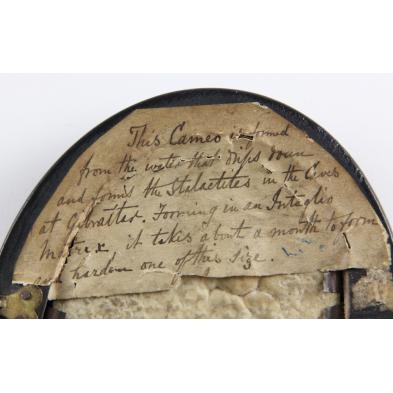 This Cameo is formed
from the water that drips down
and forms the Stalactites in the Caves
at Gibralter. Forming in an Intaglio
Matrix it takes about a month to form
and harden one of this size.